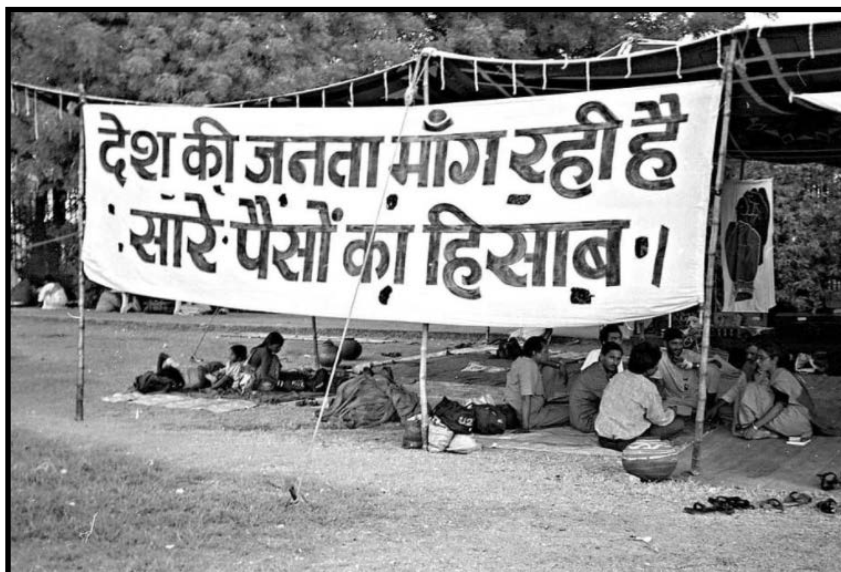 देश की जनता माँग रही है
: सारे पैसों का हिसाब ।